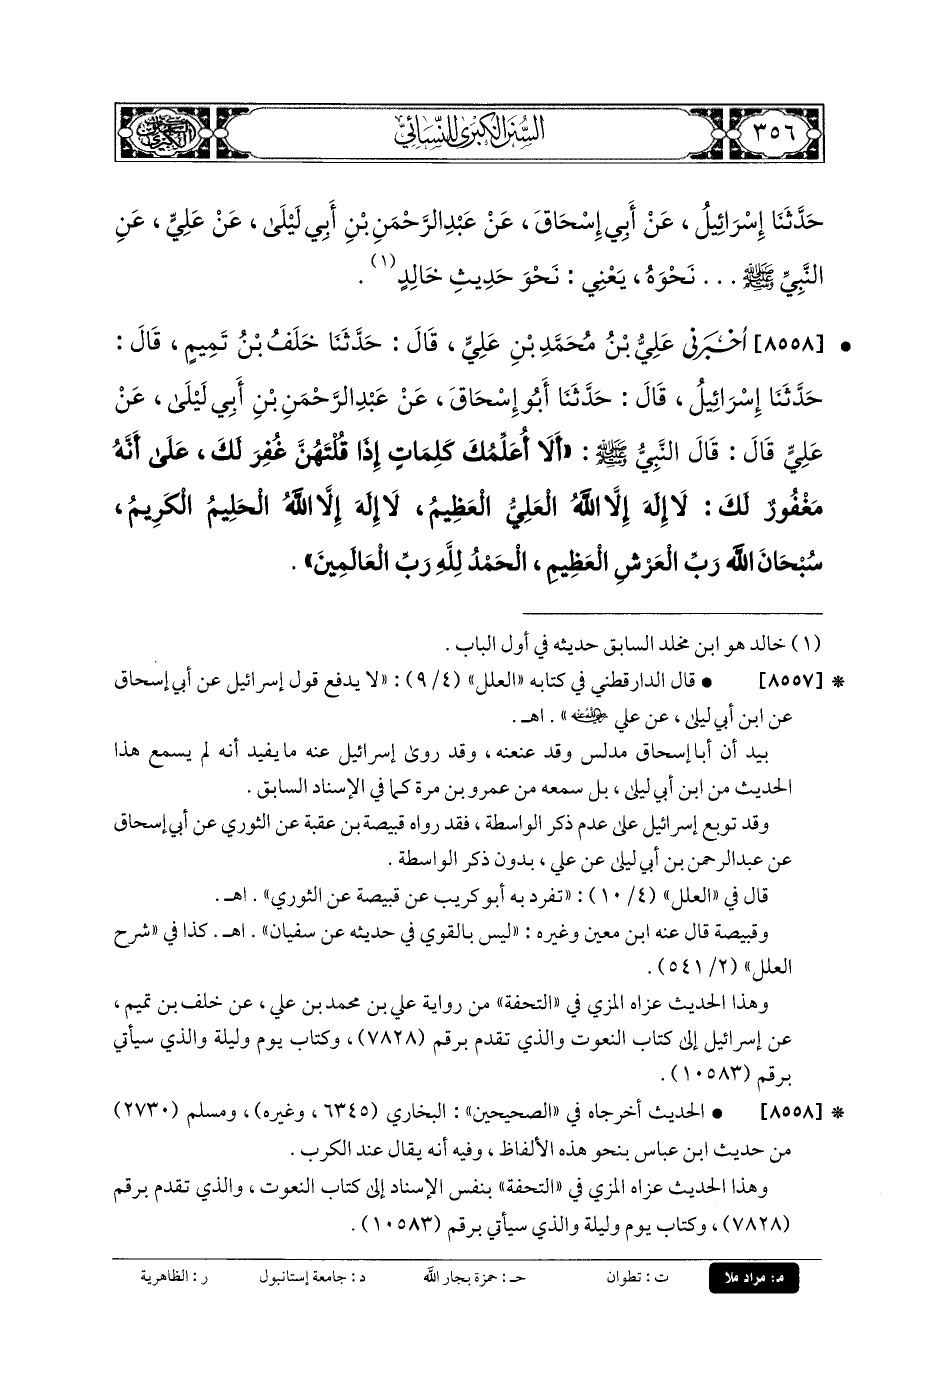 ٣٥٦
السنن الكبرى للنسائي
حَدَّثَنَا إِسْرَائِيلُ ، عَنْ أَبِي إِسْحَاقَ ، عَنْ عَبْدِالرَّحْمَنِ بْنِ أَبِي لَيْلَىٰ ، عَنْ عَلِيٍّ ، عَنِ
النَّبِيِّ ﷺ ... نَحْوَهُ ، يَعْنِي : نَحْوَ حَدِيثِ خَالِدٍ(١) .
• [٨٥٥٨] أَخْبَرَنِي عَلِيُّ بْنُ مُحَمَّدِ بْنِ عَلِيٍّ ، قَالَ : حَدَّثَنَا خَلَفُ بْنُ تَمِيمٍ ، قَالَ :
حَدَّثَنَا إِسْرَائِيلُ ، قَالَ : حَدَّثَنَا أَبُو إِسْحَاقَ ، عَنْ عَبْدِالرَّحْمَنِ بْنِ أَبِي لَيْلَىٰ ، عَنْ
عَلِيٍّ قَالَ : قَالَ النَّبِيُّ ﷺ : «أَلَا أُعَلِّمُكَ كَلِمَاتٍ إِذَا قُلْتَهُنَّ غُفِرَ لَكَ ، عَلَىٰ أَنَّهُ
مَغْفُورٌ لَكَ : لَا إِلَهَ إِلَّا اللَّهُ الْعَلِيُّ الْعَظِيمُ ، لَا إِلَهَ إِلَّا اللَّهُ الْحَلِيمُ الْكَرِيمُ ،
سُبْحَانَ اللَّهِ رَبِّ الْعَرْشِ الْعَظِيمِ ، الْحَمْدُ لِلَّهِ رَبِّ الْعَالَمِينَ» .
(١) خالد هو ابن مخلد السابق حديثه في أول الباب .
* [٨٥٥٧] • قال الدارقطني في كتابه «العلل» (٤/ ٩) : «لا يدفع قول إسرائيل عن أبي إسحاق
عن ابن أبي ليلى ، عن علي رضي الله عنه» . اهـ .
بيد أن أبا إسحاق مدلس وقد عنعنه ، وقد روى إسرائيل عنه ما يفيد أنه لم يسمع هذا
الحديث من ابن أبي ليلى ، بل سمعه من عمرو بن مرة كما في الإسناد السابق .
وقد توبع إسرائيل على عدم ذكر الواسطة ، فقد رواه قبيصة بن عقبة عن الثوري عن أبي إسحاق
عن عبدالرحمن بن أبي ليلى عن علي ، بدون ذكر الواسطة .
قال في «العلل» (٤/ ١٠) : «تفرد به أبو كريب عن قبيصة عن الثوري» . اهـ .
وقبيصة قال عنه ابن معين وغيره : «ليس بالقوي في حديثه عن سفيان» . اهـ . كذا في «شرح
العلل» (٢/ ٥٤١) .
وهذا الحديث عزاه المزي في «التحفة» من رواية علي بن محمد بن علي ، عن خلف بن تميم ،
عن إسرائيل إلى كتاب النعوت والذي تقدم برقم (٧٨٢٨) ، وكتاب يوم وليلة والذي سيأتي
برقم (١٠٥٨٣) .
* [٨٥٥٨] • الحديث أخرجاه في «الصحيحين» : البخاري (٦٣٤٥ ، وغيره) ، ومسلم (٢٧٣٠)
من حديث ابن عباس بنحو هذه الألفاظ ، وفيه أنه يقال عند الكرب .
وهذا الحديث عزاه المزي في «التحفة» بنفس الإسناد إلى كتاب النعوت ، والذي تقدم برقم
(٧٨٢٨) ، وكتاب يوم وليلة والذي سيأتي برقم (١٠٥٨٣) .
م: مراد ملا ت : تطوان حـ : حمزة بجار الله د : جامعة إستانبول ر : الظاهرية